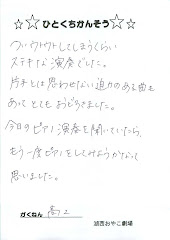 ☆☆ひとくちかんそう☆☆
ついウトウトしてしまうくらい
ステキな演奏でした。
片手とは思わせない迫力のある曲も
あって とてもおどろきました。
今日のピアノ演奏を聞いていたら、
もう一度ピアノをしてみようかなって
思いました。
がくねん 高2
湖西おやこ劇場